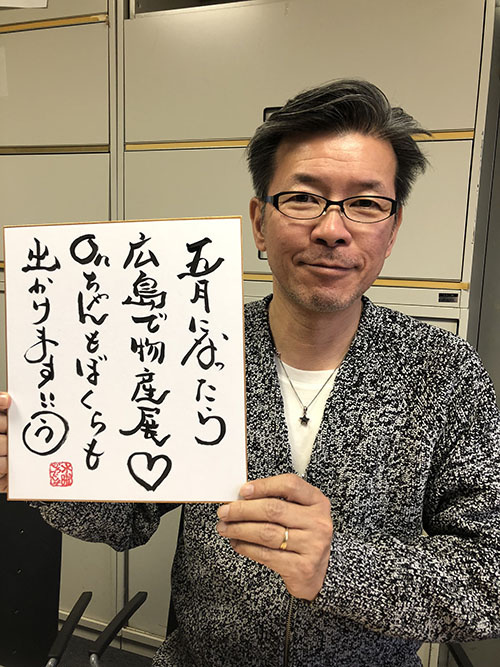 五月になったら
広島で物産展♡
onちゃんもぼくらも
出かけます!!う